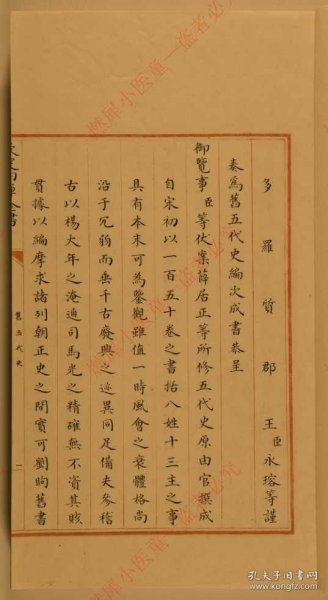 多羅質郡王臣永瑢等謹
奏爲舊五代史編次成書恭呈
御覽事臣等伏案薛居正等所修五代史原由官撰成
自宋初以一百五十卷之書括八姓十三主之事
具有本末可爲鑒觀雖值一時風會之衰體格尚
沿于冗弱而垂千古廢興之迹異同足備夫參稽
古以楊大年之淹通司馬光之精確無不資其賅
貫據以編摩求諸列朝正史之間實可劉昫舊書
舊五代史
燃犀小医童—盗者必究
孔夫子旧书网